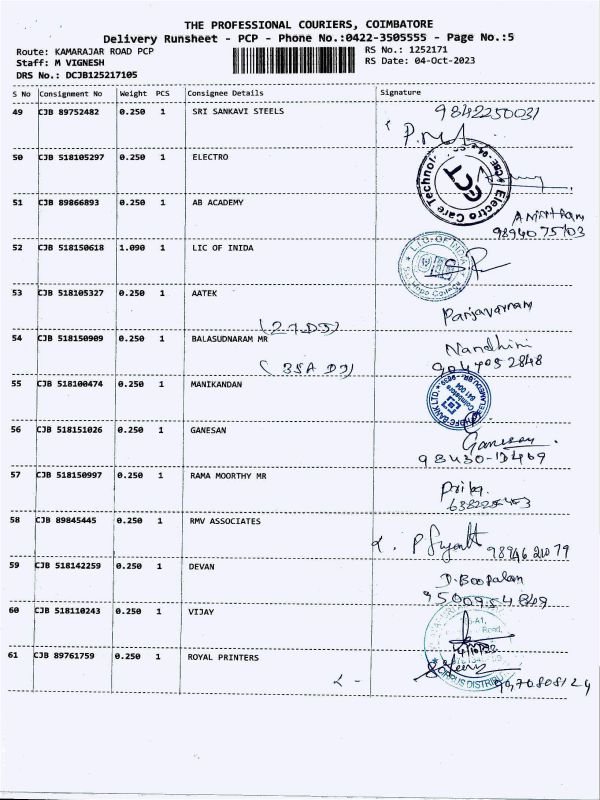 THE PROFESSIONAL COURIERS, COIMBATORE
Delivery Runsheet - PCP - Phone No.:0422-3505555 - Page No.:5
Route: KAMARAJAR ROAD PCP RS No.: 1252171
Staff: M VIGNESH RS Date: 04-Oct-2023
DRS No.: DCJB125217105
S No Consignment No Weight PCS Consignee Details Signature
49 CJB 89752482 0.250 1 SRI SANKAVI STEELS 9842250031
50 CJB 518105297 0.250 1 ELECTRO
Electro Care Technolo
51 CJB 89866893 0.250 1 AB ACADEMY
9894075103
52 CJB 518150618 1.090 1 LIC OF INIDA
L.I.C. OF INDIA
53 CJB 518105327 0.250 1 AATEK
Panjavarnam
54 CJB 518150909 0.250 1 BALASUDNARAM MR Nandhini
9047052848
55 CJB 518100474 0.250 1 MANIKANDAN
HDFC BANK LTD.
Coimbatore
641 004
56 CJB 518151026 0.250 1 GANESAN
Ganesan
57 CJB 518150997 0.250 1 RAMA MOORTHY MR Priya
58 CJB 89845445 0.250 1 RMV ASSOCIATES
9894621079
59 CJB 518142259 0.250 1 DEVAN D. Boopalan
9500954849
60 CJB 518110243 0.250 1 VIJAY
61 CJB 89761759 0.250 1 ROYAL PRINTERS